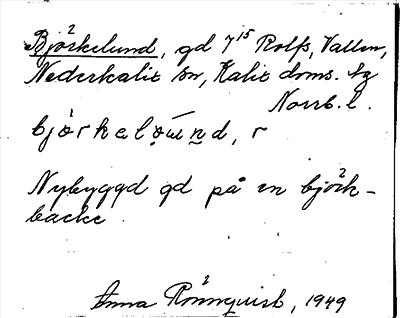 Björkelund, gd 7¹⁵ Rolfs, Vallen,
Nederkalix sn, Kalix doms. tg
Norrb. l.
björkelωnd, r
Nybyggd gd på en björk-
backe.
Anna Rönnquist, 1949